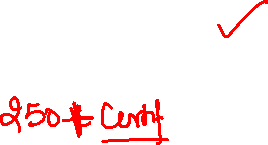 250+ Certif